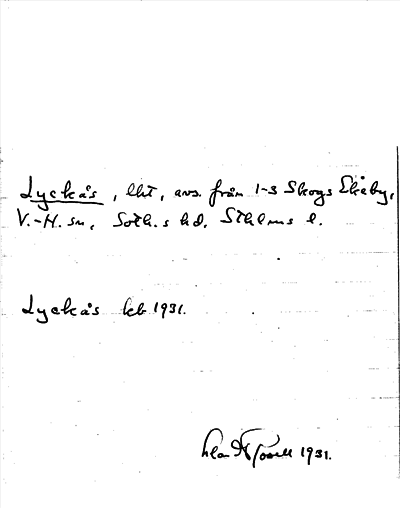 Lyckås, lht, avs. från 1-3 Skogs Ekeby,
V.-H. sn, Soth.s hd. Sthlms l.
Lyckås kb 1931.
1931.